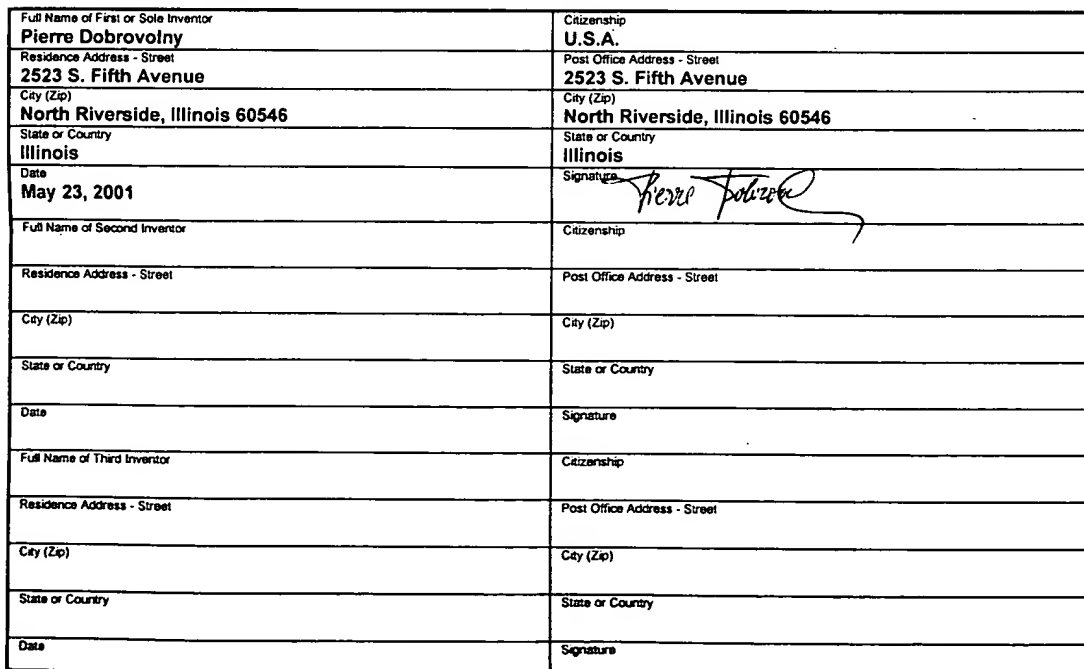 Full Name of First or Sole Inventor
Pierre Dobrovolny
Citizenship
U.S.A.
Residence Address - Street
2523 S. Fifth Avenue
Post Office Address - Street
2523 S. Fifth Avenue
City (Zip)
North Riverside, Illinois 60546
City (Zip)
North Riverside, Illinois 60546
State or Country
Illinois
State or Country
Illinois
Date
May 23, 2001
Signature
Pierre
Full Name of Second Inventor
Citizenship
Residence Address - Street
Post Office Address - Street
City (Zip)
City (Zip)
State or Country
State or Country
Date
Signature
Full Name of Third Inventor
Citizenship
Residence Address - Street
Post Office Address - Street
City (Zip)
City (Zip)
State or Country
State or Country
Date
Signature